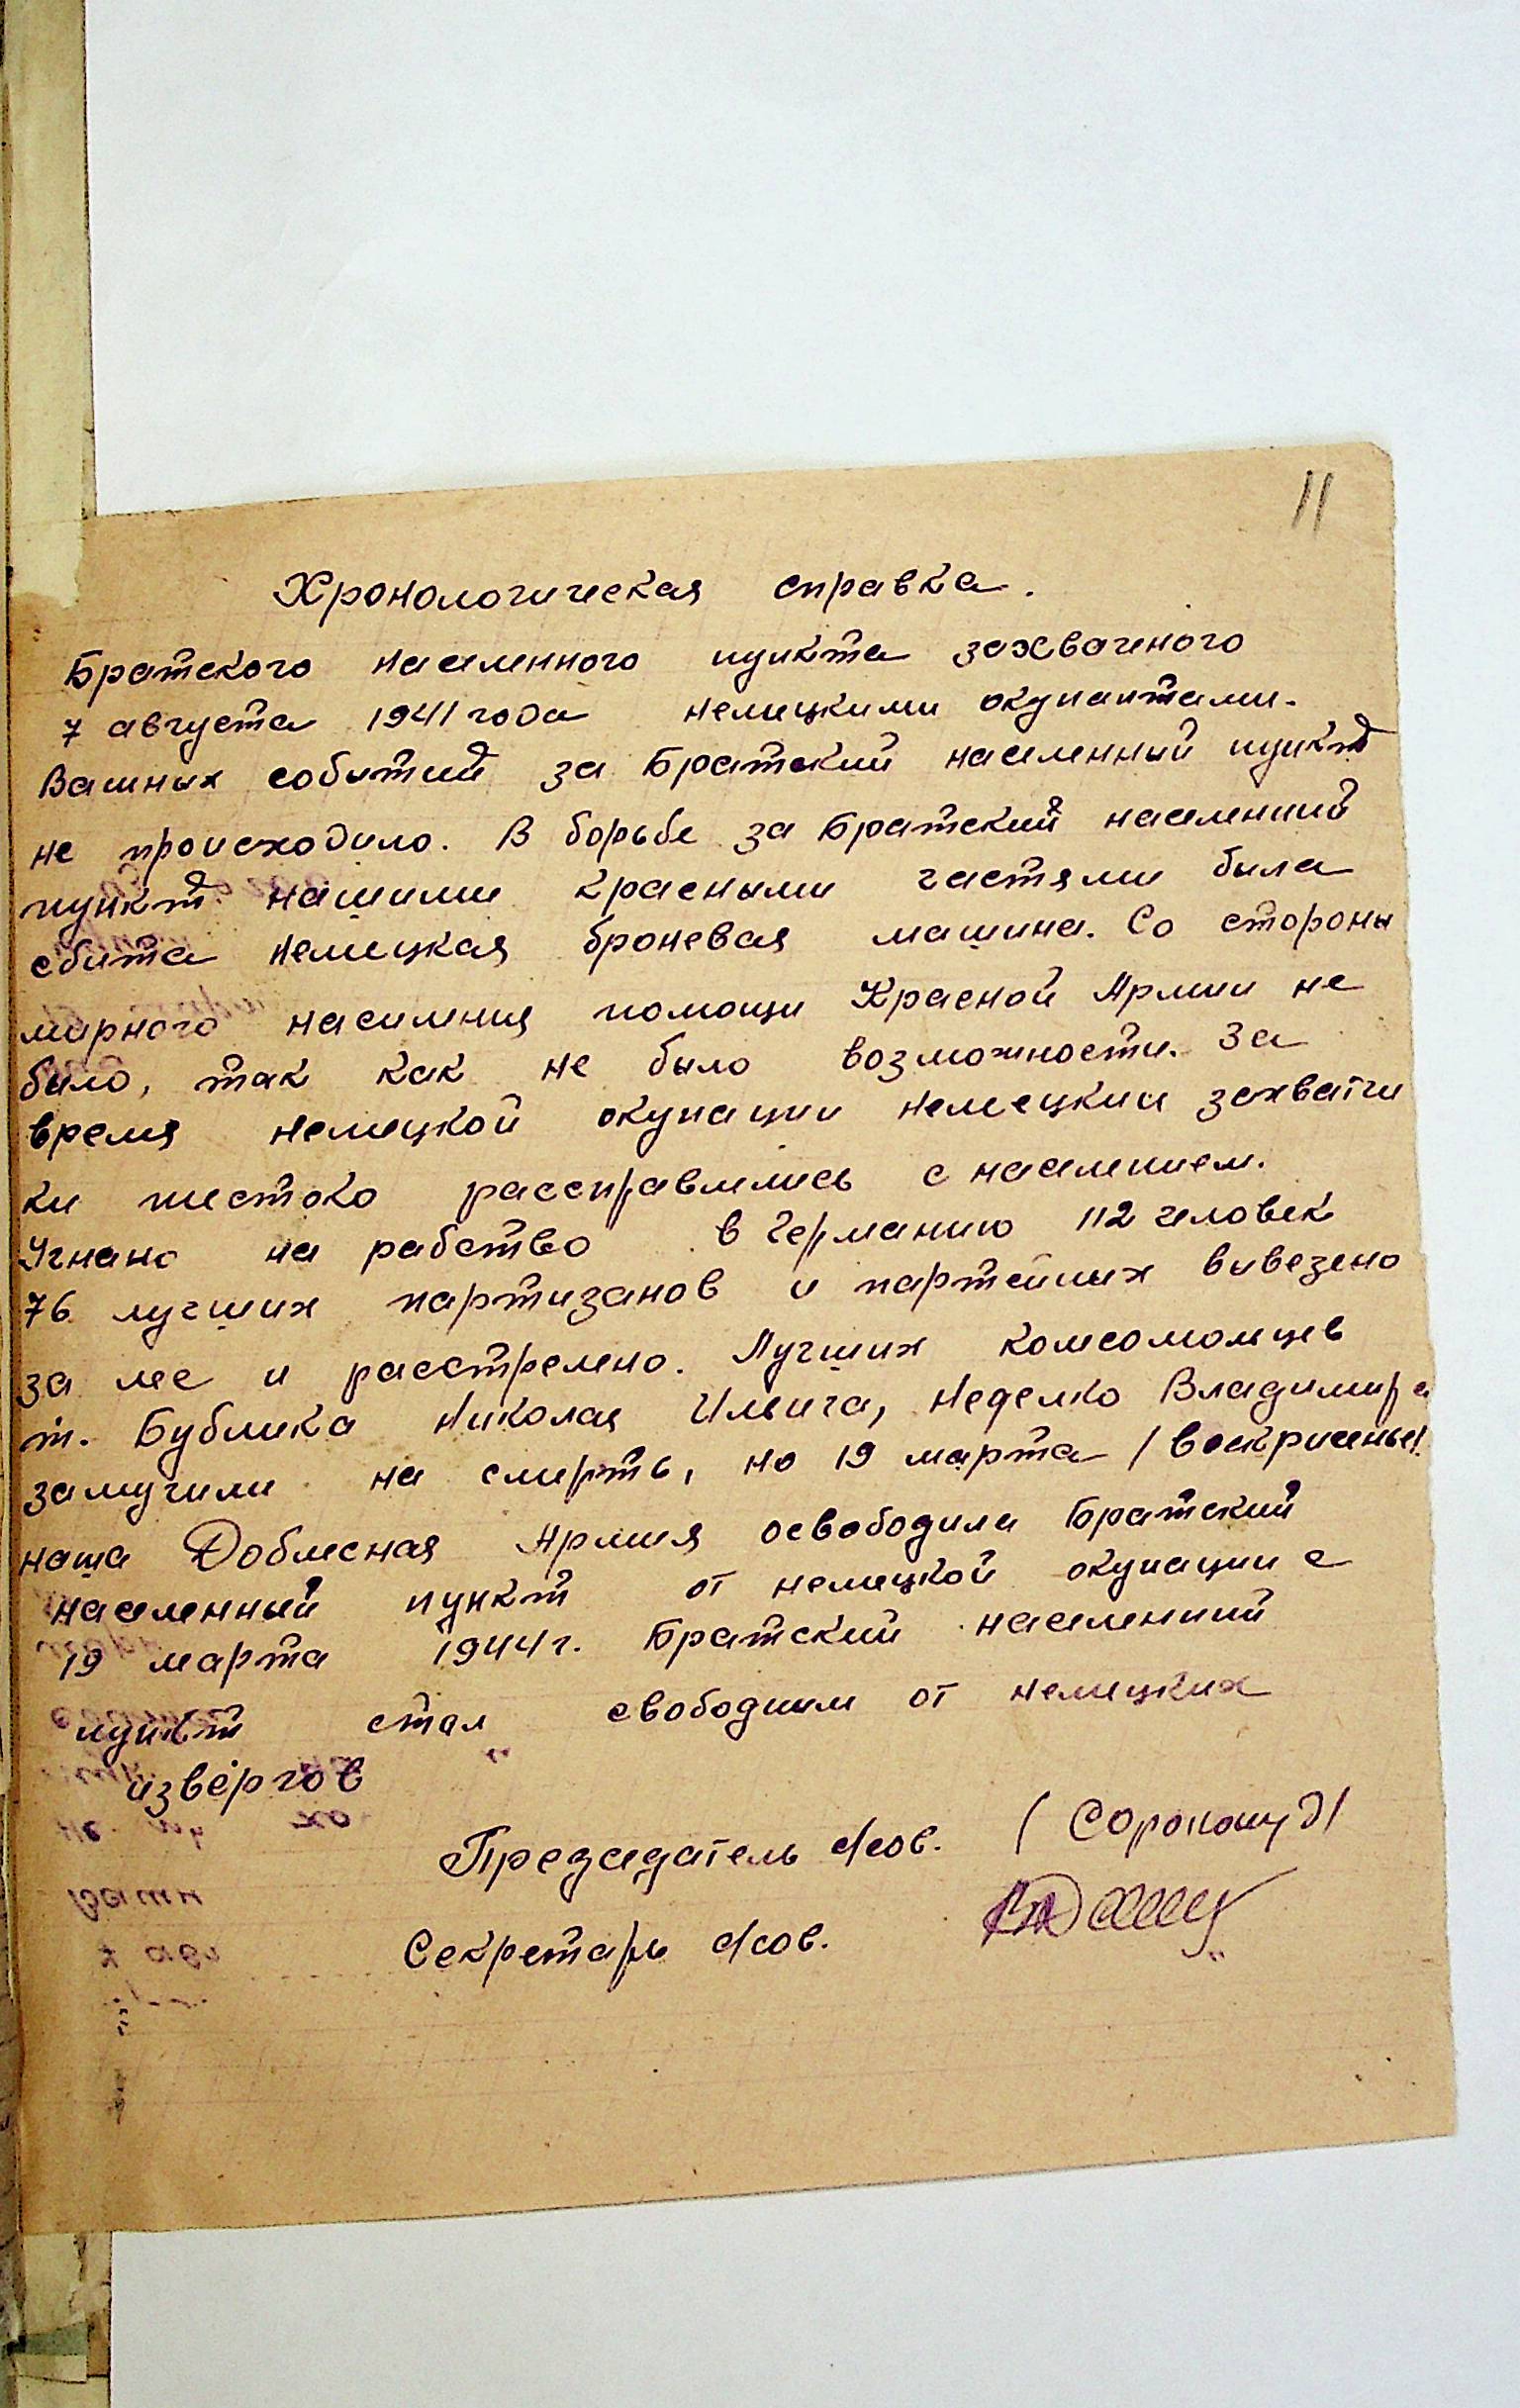 11
Хронологическая справка.
Братского населенного пункта захваченого
7 августа 1941 года немецкими окупантами.
Важных событий за Братский населенный пункт
не происходило. В борьбе за Братский населенний
пункт нашими красными частями была
сбита немецкая броневая машина. Со стороны
мирного населения помощи Красной Армии не
било, так как не было возможности. За
время немецкой окупации немецкии захватчи
ки жестоко рассправлялись с населением.
Угнано на рабство в Германию 112 человек
76 лучших партизанов и партейных вивезено
за лес и расстрелено. Лучших комсомомцев
т. Бублика Николая Ильича, Неделко Владимира
замучили на смерть, но 19 марта /воскрисенье/
наша Доблесная Армия освободила Братский
населенный пункт от немецкой окупации с
19 марта 1944 г. Братский населенний
пункт стал свободним от немецких
извергов
Презедатель с/сов. /Сорокоуд/
Секретарь с/сов.